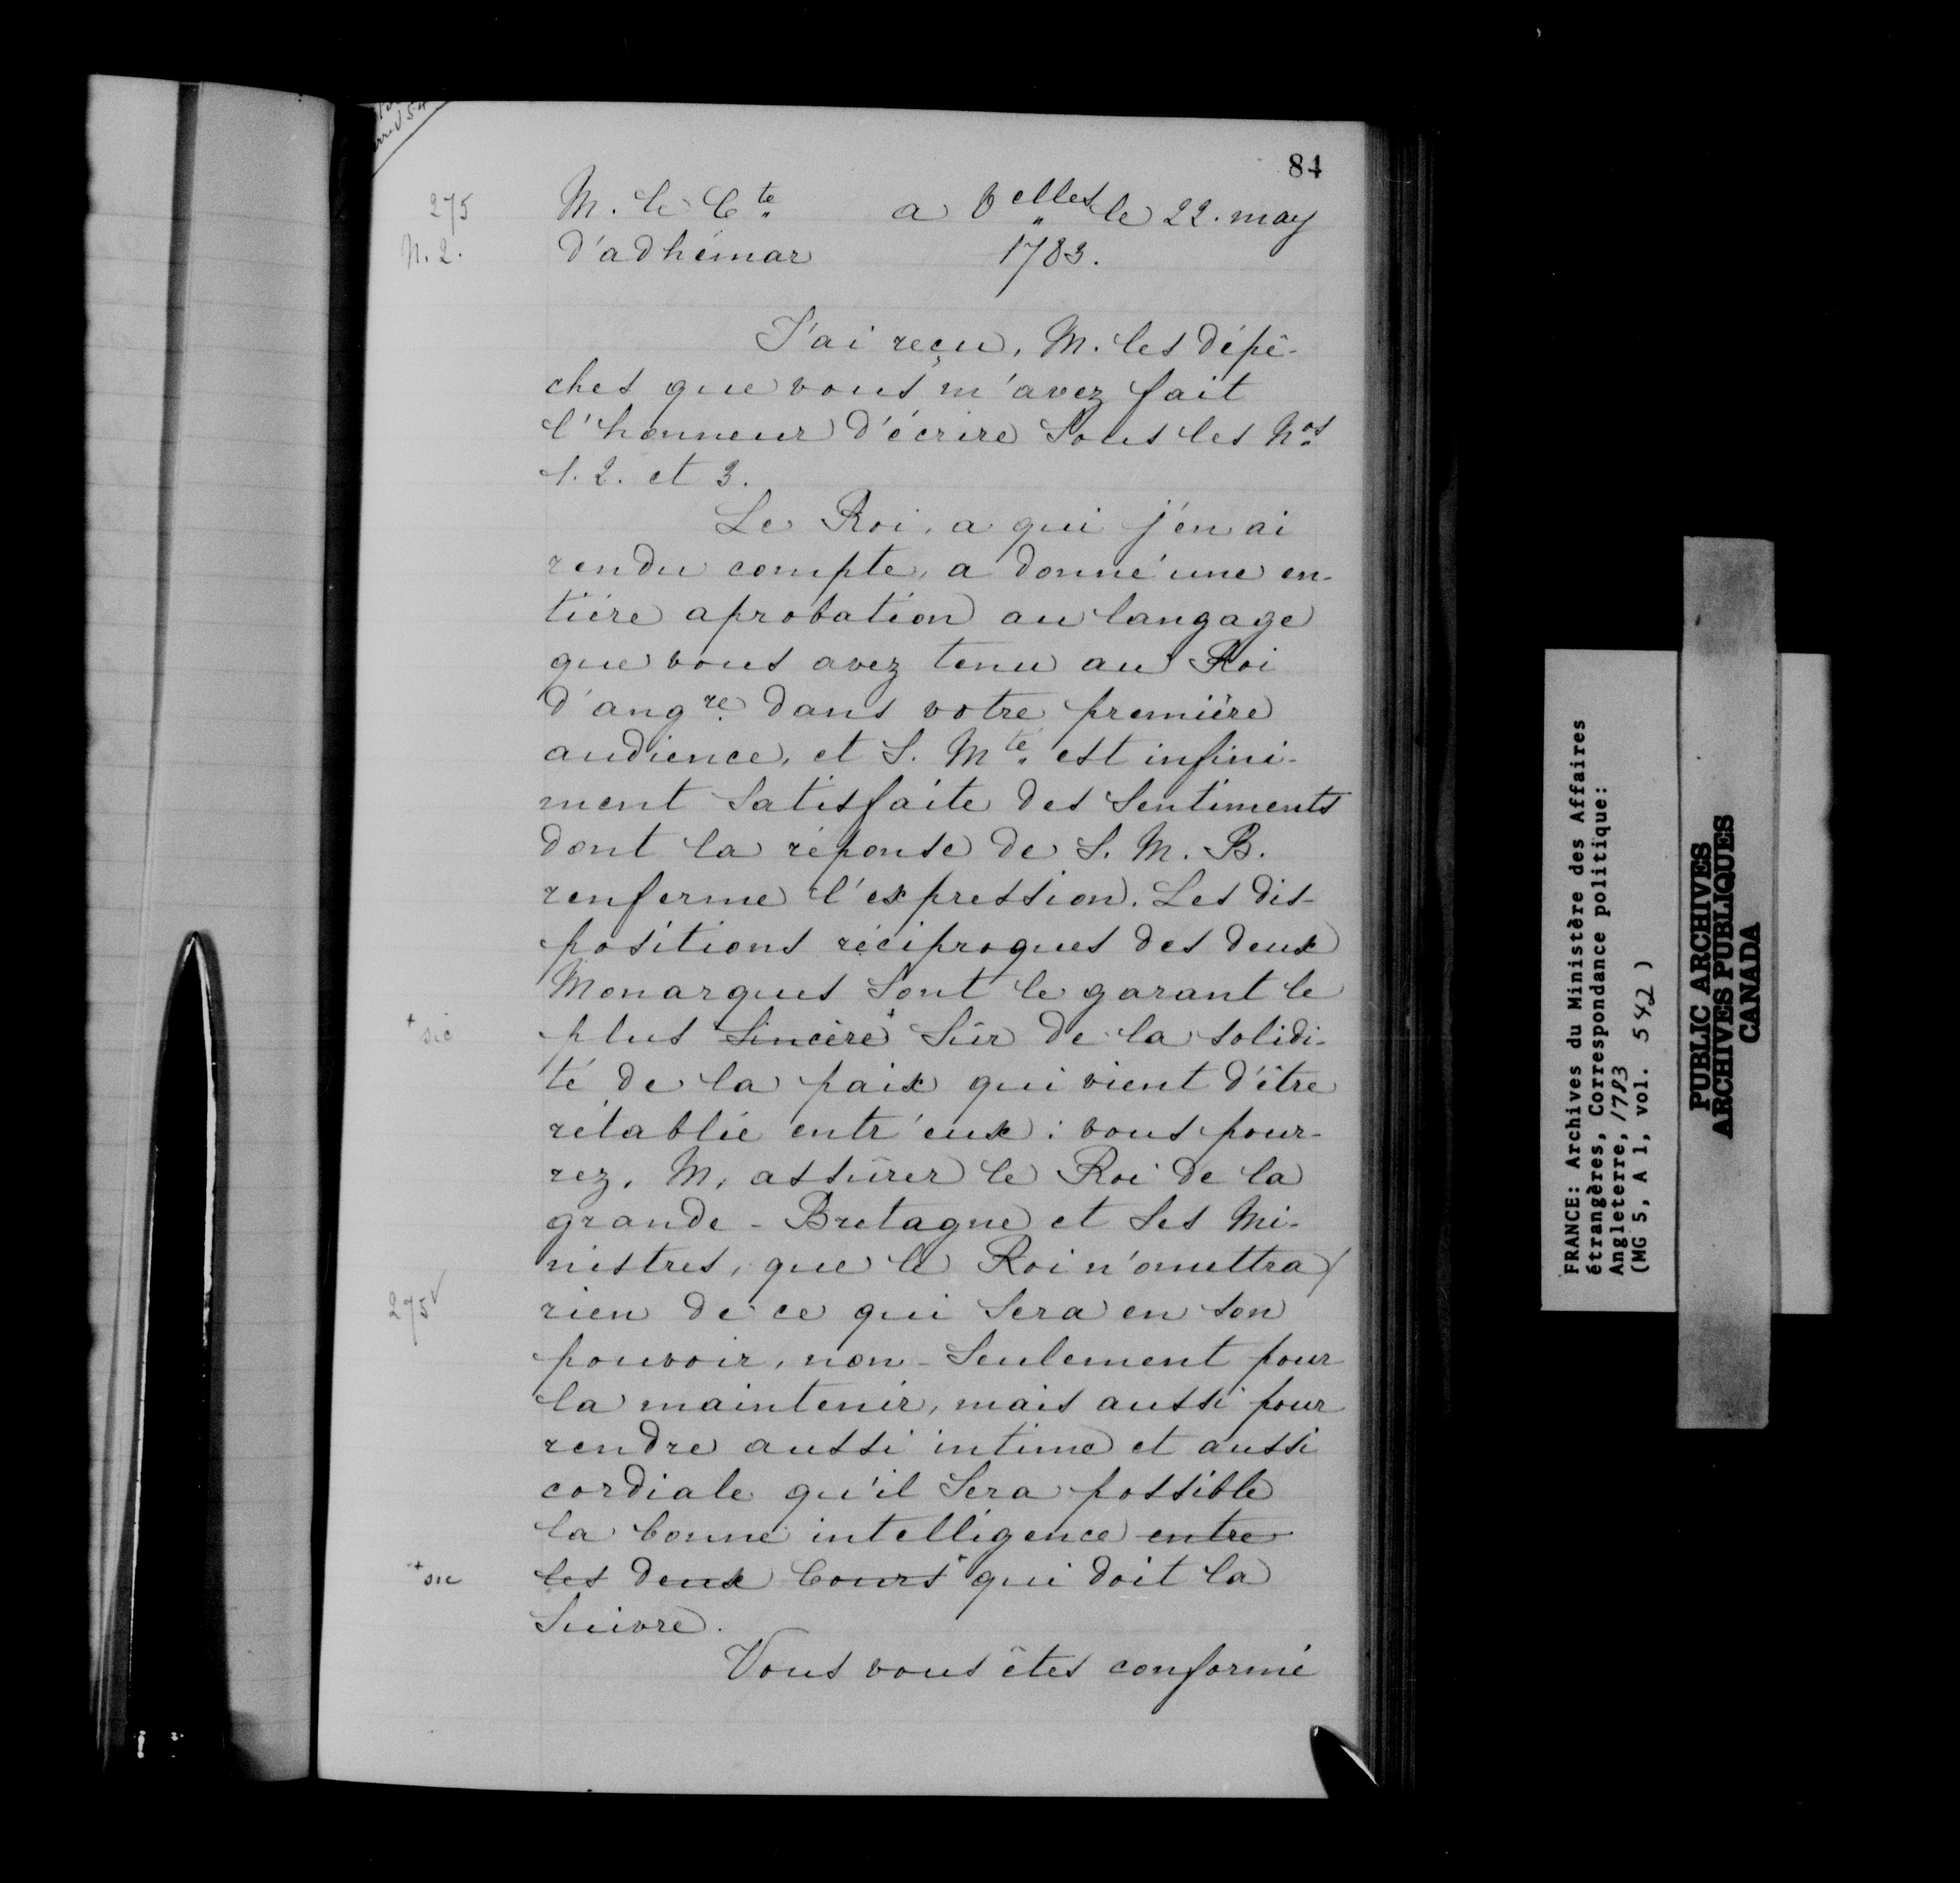 84
275
N. 2.
M. le Cte a Velles le 22. may
d'adhémar 1783.
J'ai reçu, M. les dépê-
ches que vous m'avez fait
l'honneur d'écrire Sous les Nos
1. 2. et 3.
Le Roi, a qui j'en ai
rendu compte, a donné une en-
tière aprobation au langage
que vous avez tenu au Roi
d'angre dans votre première
audience, et S. Mté est infini-
ment Satisfaite des Sentiments
dont la réponse de S. M. B.
renferme l'expression. Les dis-
positions réciproques des deux
Monarques Sont le garant le
+ sic
plus Sincère + Sûr de la solidi-
té de la paix qui vient d'être
rétablie entr'eux : vous pour-
rez, M, assûrer le Roi de la
grande-Bretagne et Ses Mi-
nistres, que le Roi n'omettra /
275v
rien de ce qui Sera en son
pouvoir, non-Seulement pour
la maintenir, mais aussi pour
rendre aussi intime et aussi
cordiale qu'il Sera possible
la bonne intelligence entre
+ sic
les deux Cours + qui doit la
Suivre.
Vous vous êtes conformé
FRANCE: Archives du Ministère des Affaires
étrangères, Correspondance politique:
Angleterre, 1783
(MG 5, A 1, vol. 542 )
PUBLIC ARCHIVES
ARCHIVES PUBLIQUES
CANADA